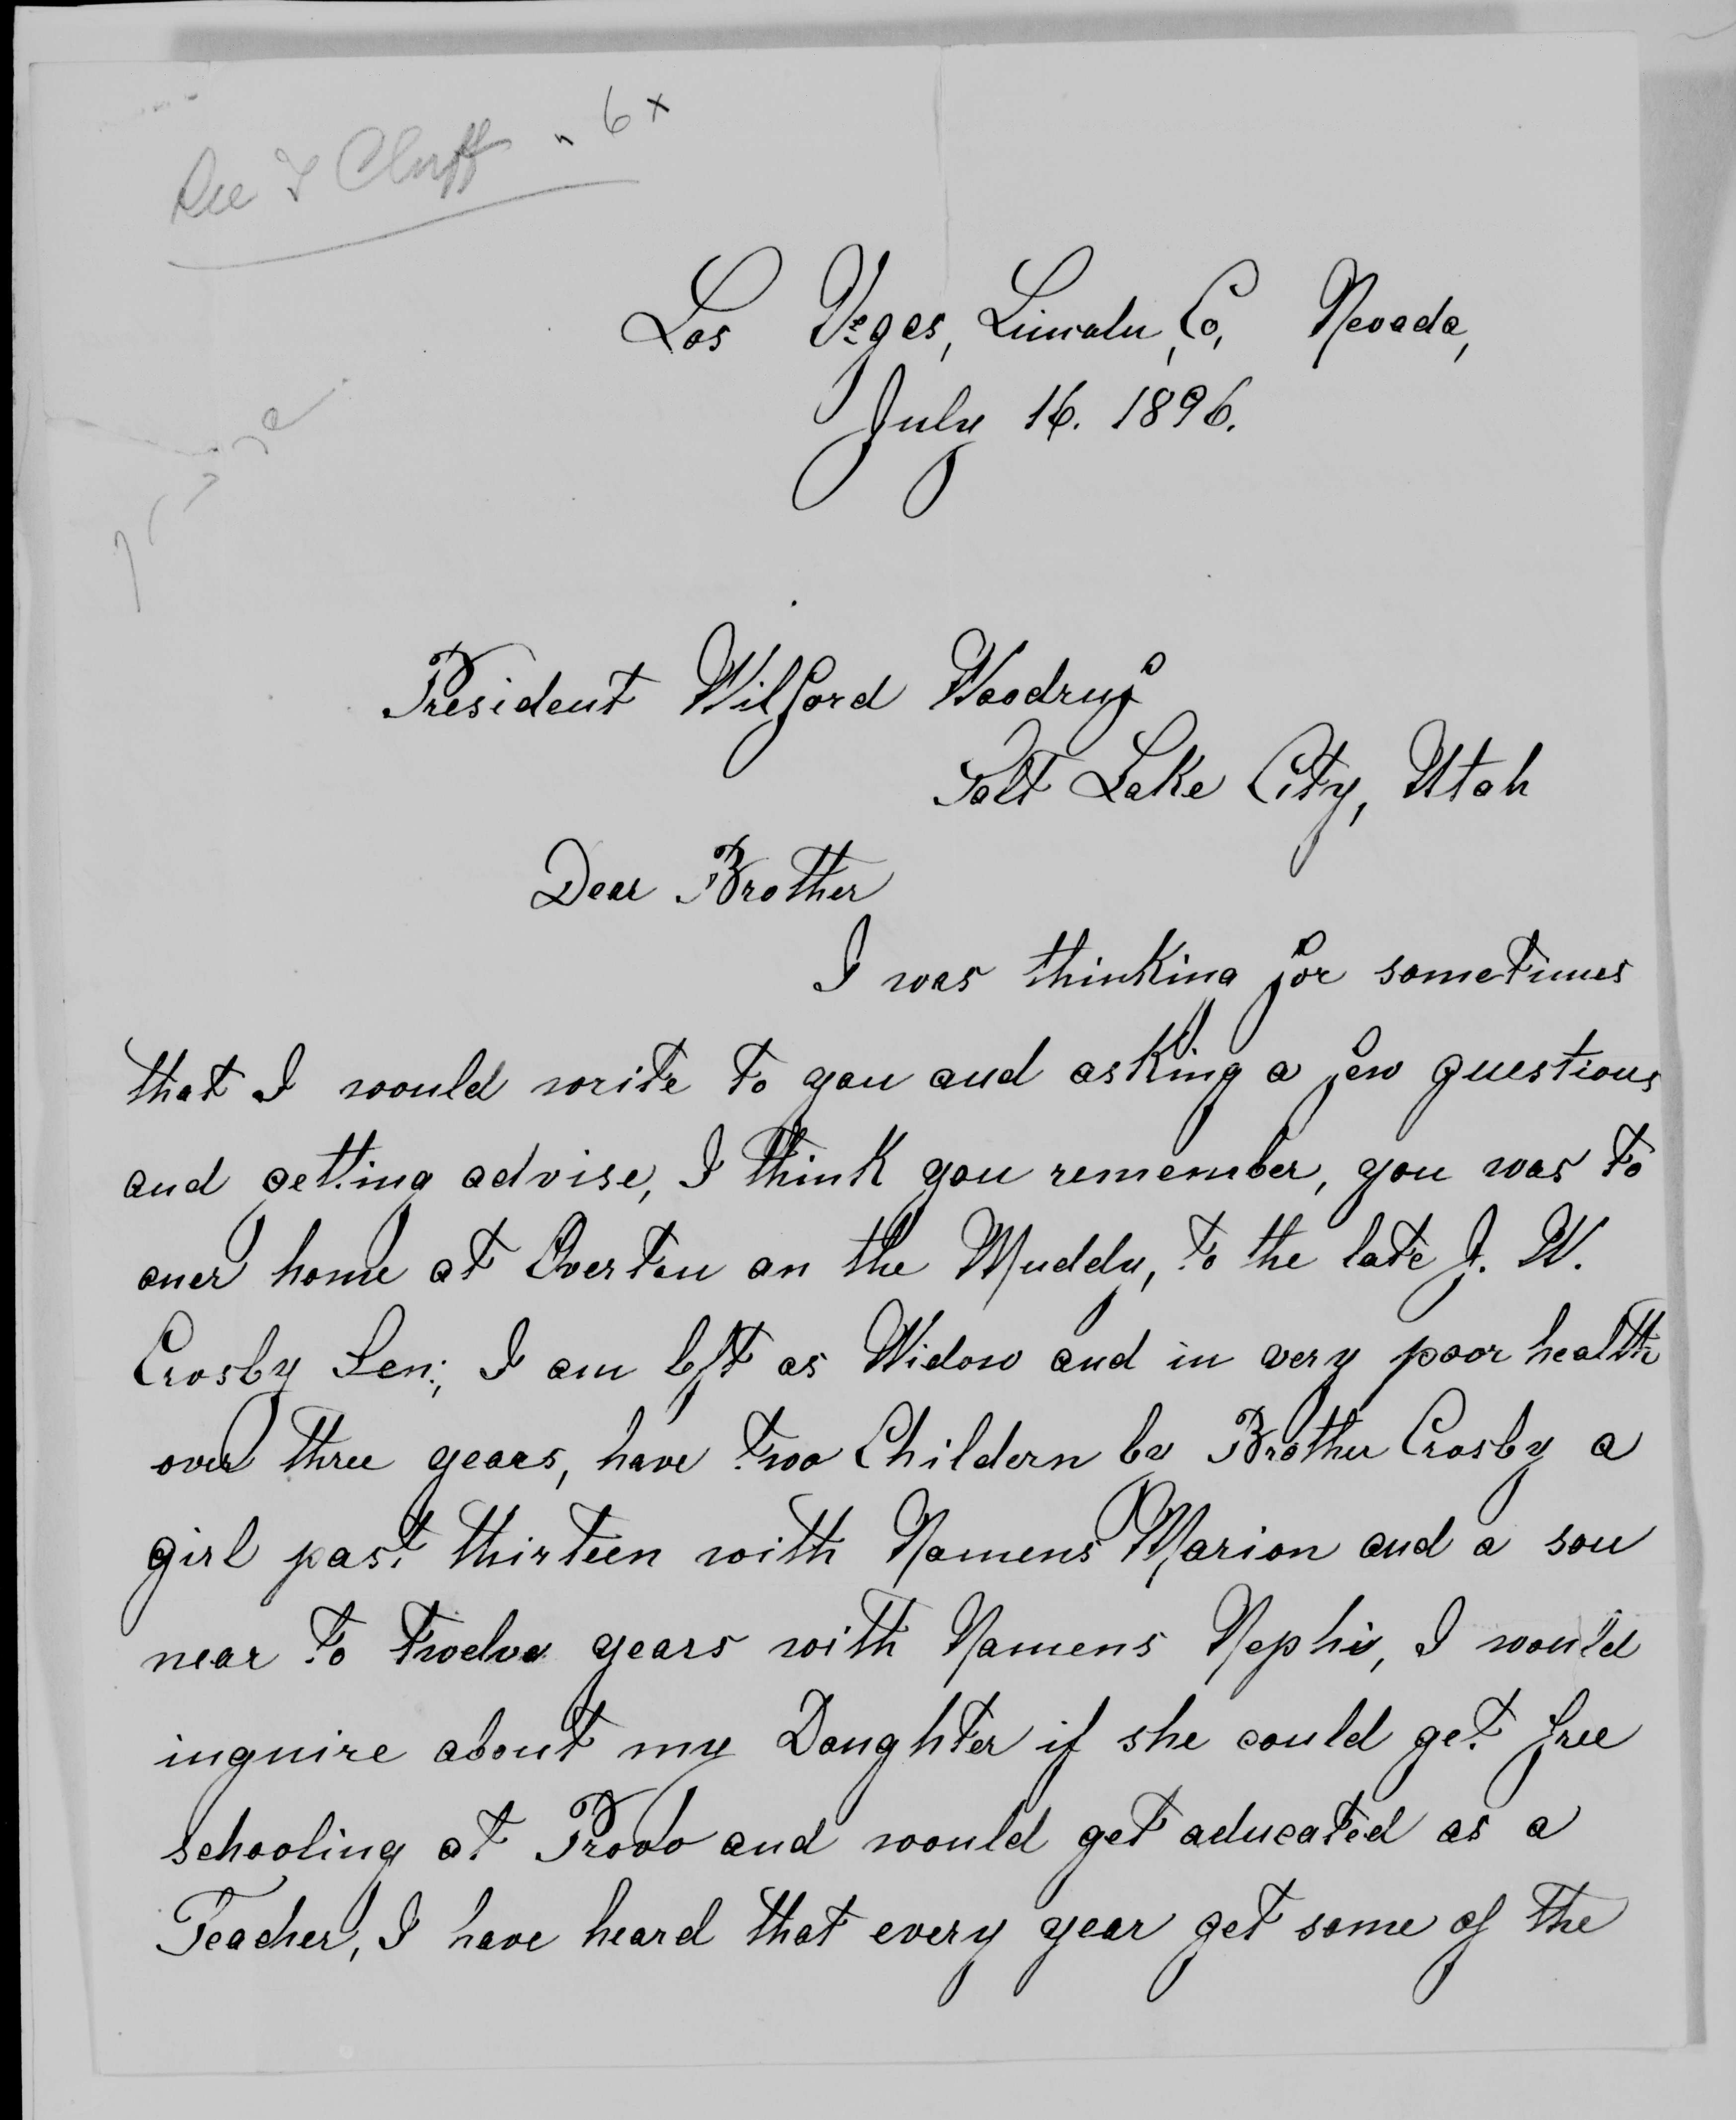 See I Cluff " 6 x
Las Vegas, Lincoln, Co, Nevada,
July 16. 1896.
President Wilford Woodruf
Salt Lake City, Utah
Dear Brother
I was thinking for sometimes
that I would write to you and asking a few questions
and getting advise, I think you remember, you was to
ouer home at Overton on the Muddy, to the late J. W.
Crosby Sen; I am left as Widow and in very poor health
over three years, have two Childern by Brother Crosby a
girl past thirteen with Namens Marion and a son
near to twelve years with Namens Nephi, I would
inquire about my Doughter if she could get free
schooling at Provo and would get aducated as a
Teacher, I have heard that every year get some of the